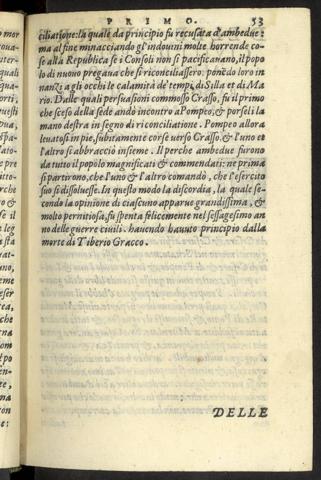 PRIMO. 53
ciliatione: la quale da principio fu recusata d'ambedue:
ma al fine minacciando gl'indouini molte horrende co-
se alla Republica se i Consoli non si pacificauano, il popo
lo di nuouo pregaua che si riconciliassero: ponēdo loro in
nanzi a gli occhi le calamità de' tempi di Silla et di Ma
rio. Dalle quali persuasioni commosso Crasso, fu il primo
che sceso della sede andò incontro a Pompeo, & porseli la
mano destra in segno di riconciliatione. Pompeo allora
leuatosi in pie, subitamente corse uerso Crasso, & l'uno et
l'altro si abbracciò insieme. Il perche ambedue furono
da tutto il popolo magnificati & commendati: ne prima
si partirono, che l'uno & l'altro comandò, che l'esercito
suo si dissoluesse. In questo modo la discordia, la quale se-
condo la opinione di ciascuno apparue grandissima, &
molto pernitiosa, fu spenta felicemente nel sessagesimo an
no delle guerre ciuili, hauendo hauuto principio dalla
morte di Tiberio Gracco.
DELLE